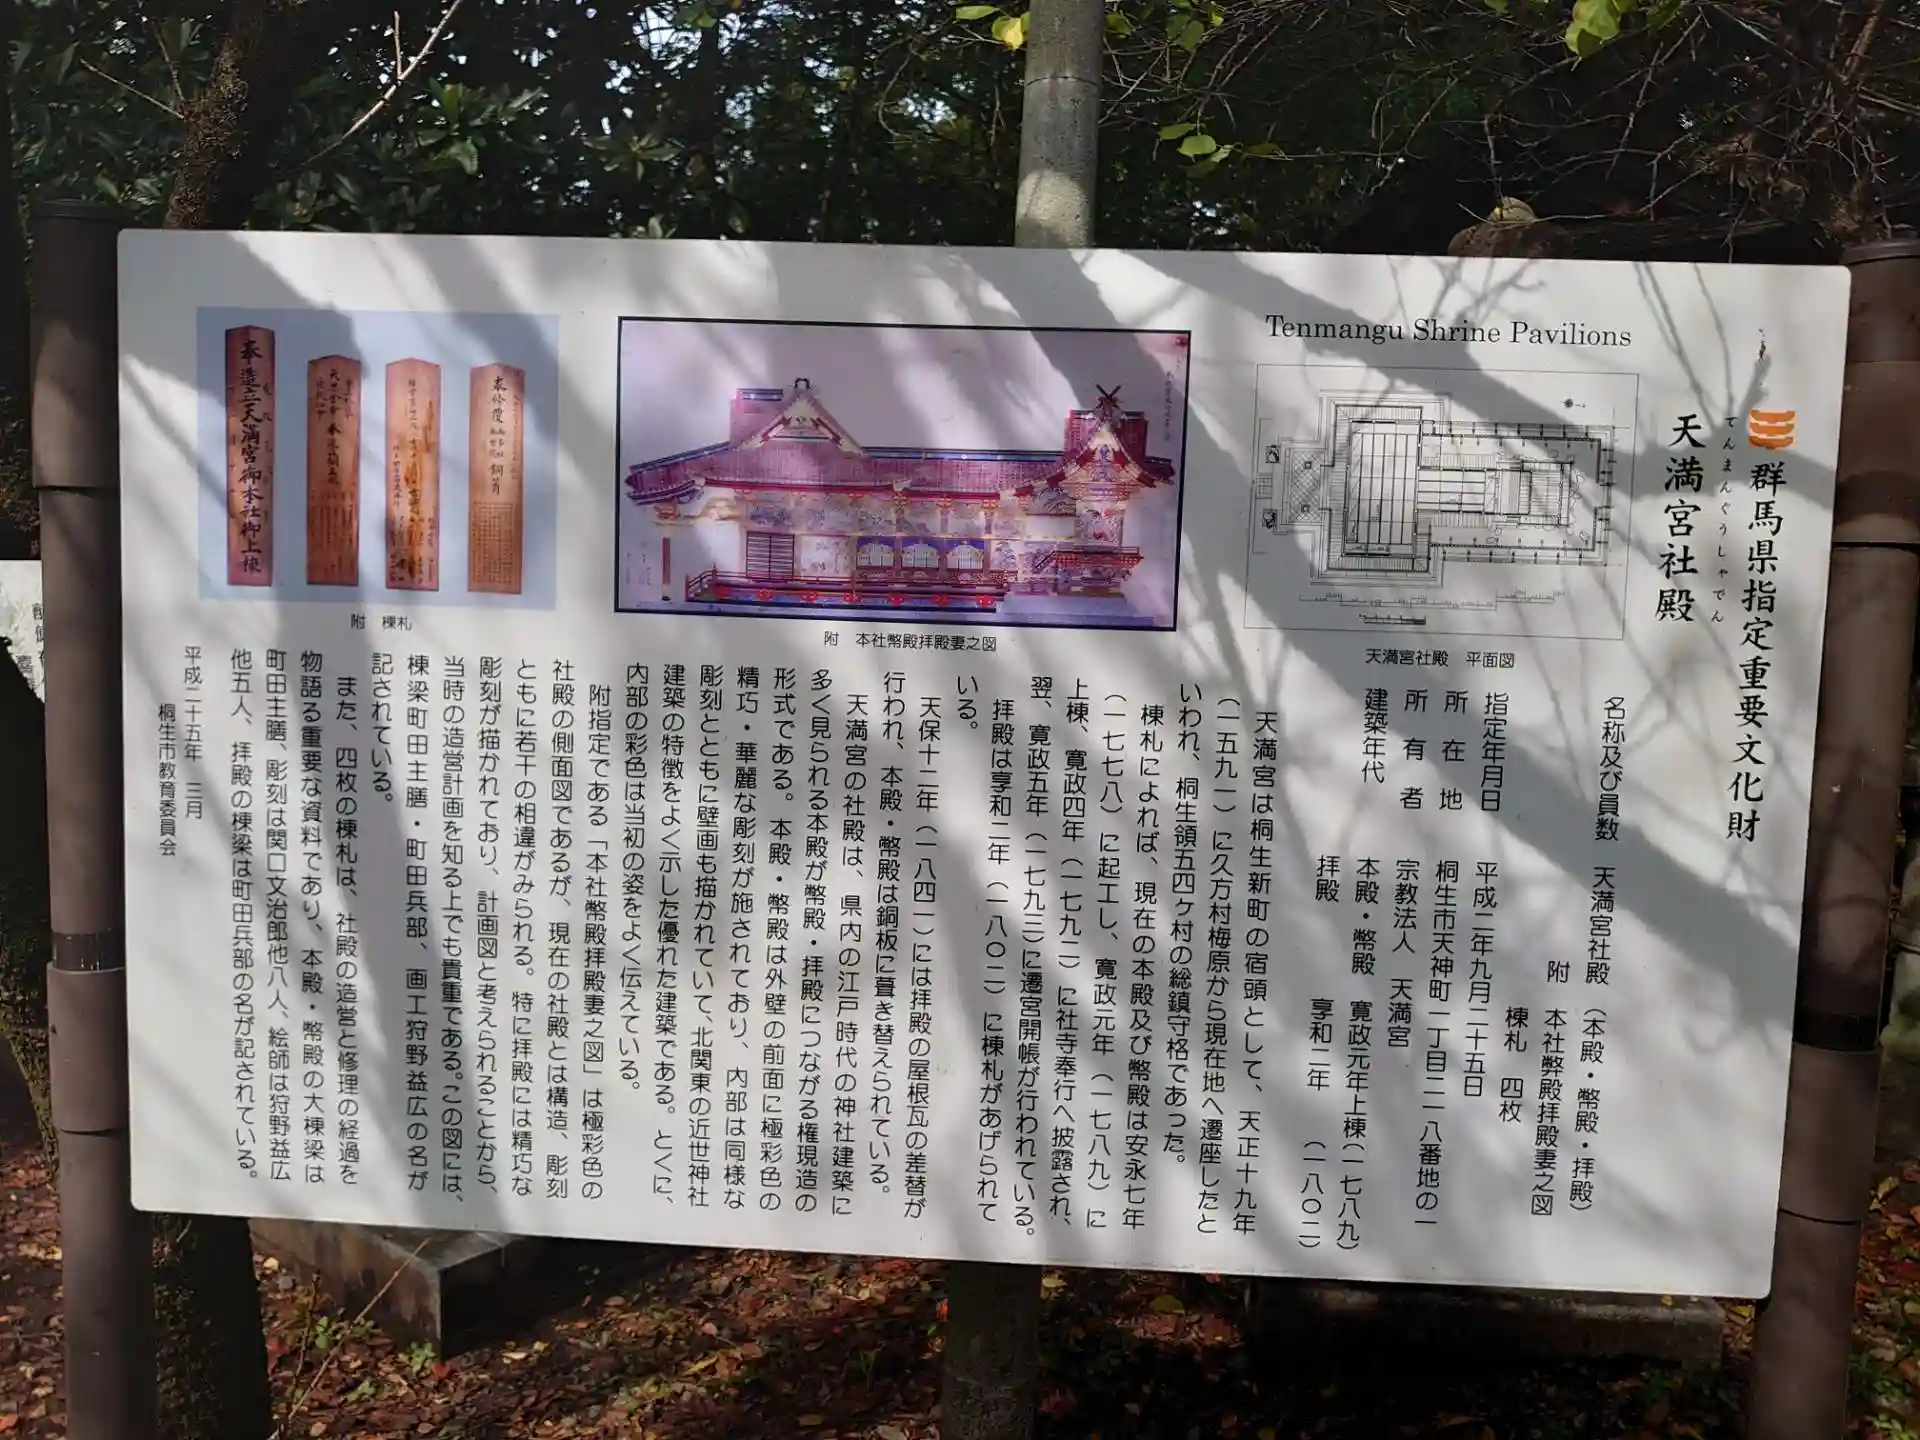 Tenmangu Shrine Pavilions
群馬県指定重要文化財
てんまんぐうしゃでん
天満宮社殿
名称及び員数　天満宮社殿　（本殿・幣殿・拝殿）
附　本社弊殿拝殿妻之図
棟札　四枚
指定年月日　平成二年九月二十五日
所在地　桐生市天神町一丁目二一八番地の一
所有者　宗教法人　天満宮
建築年代　本殿・幣殿　寛政元年上棟（一七八九）
拝殿　享和二年　（一八〇二）
天満宮は桐生新町の宿頭として、天正十九年
（一五九一）に久方村梅原から現在地へ遷座したと
いわれ、桐生領五四ヶ村の総鎮守格であった。
棟札によれば、現在の本殿及び幣殿は安永七年
（一七七八）に起工し、寛政元年（一七八九）に
上棟、寛政四年（一七九二）に社寺奉行へ披露され、
翌、寛政五年（一七九三）に遷宮開帳が行われている。
拝殿は享和二年（一八〇二）に棟札があげられて
いる。
天保十二年（一八四一）には拝殿の屋根瓦の差替が
行われ、本殿・幣殿は銅板に葺き替えられている。
天満宮の社殿は、県内の江戸時代の神社建築に
多く見られる本殿が幣殿・拝殿につながる権現造の
形式である。本殿・幣殿は外壁の前面に極彩色の
精巧・華麗な彫刻が施されており、内部は同様な
彫刻とともに壁画も描かれていて、北関東の近世神社
建築の特徴をよく示した優れた建築である。とくに、
内部の彩色は当初の姿をよく伝えている。
附指定である「本社幣殿拝殿妻之図」は極彩色の
社殿の側面図であるが、現在の社殿とは構造、彫刻
ともに若干の相違がみられる。特に拝殿には精巧な
彫刻が描かれており、計画図と考えられることから、
当時の造営計画を知る上でも貴重である。この図には、
棟梁町田主膳・町田兵部、画工狩野益広の名が
記されている。
また、四枚の棟札は、社殿の造営と修理の経過を
物語る重要な資料であり、本殿・幣殿の大棟梁は
町田主膳、彫刻は関口文治郎他八人、絵師は狩野益広
他五人、拝殿の棟梁は町田兵部の名が記されている。
平成二十五年　三月
桐生市教育委員会
天満宮社殿　平面図
附　本社幣殿拝殿妻之図
附　棟札
奉造立天満宮御本社御上棟